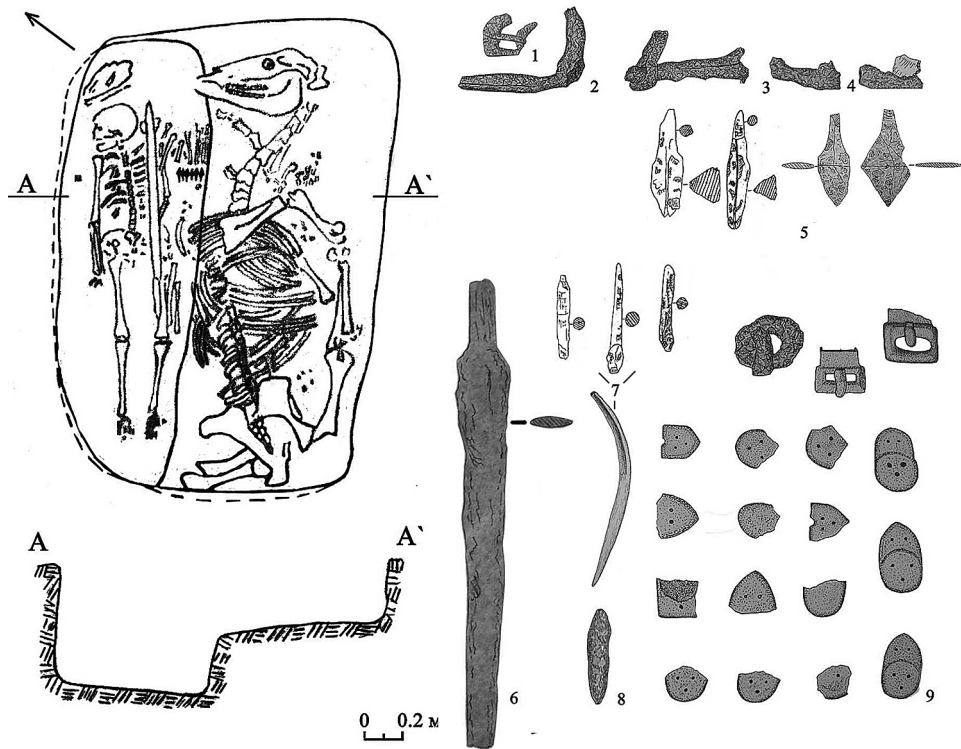 A A`
A A`
0 0.2 м
1
2
3
4
5
6
7
8
9